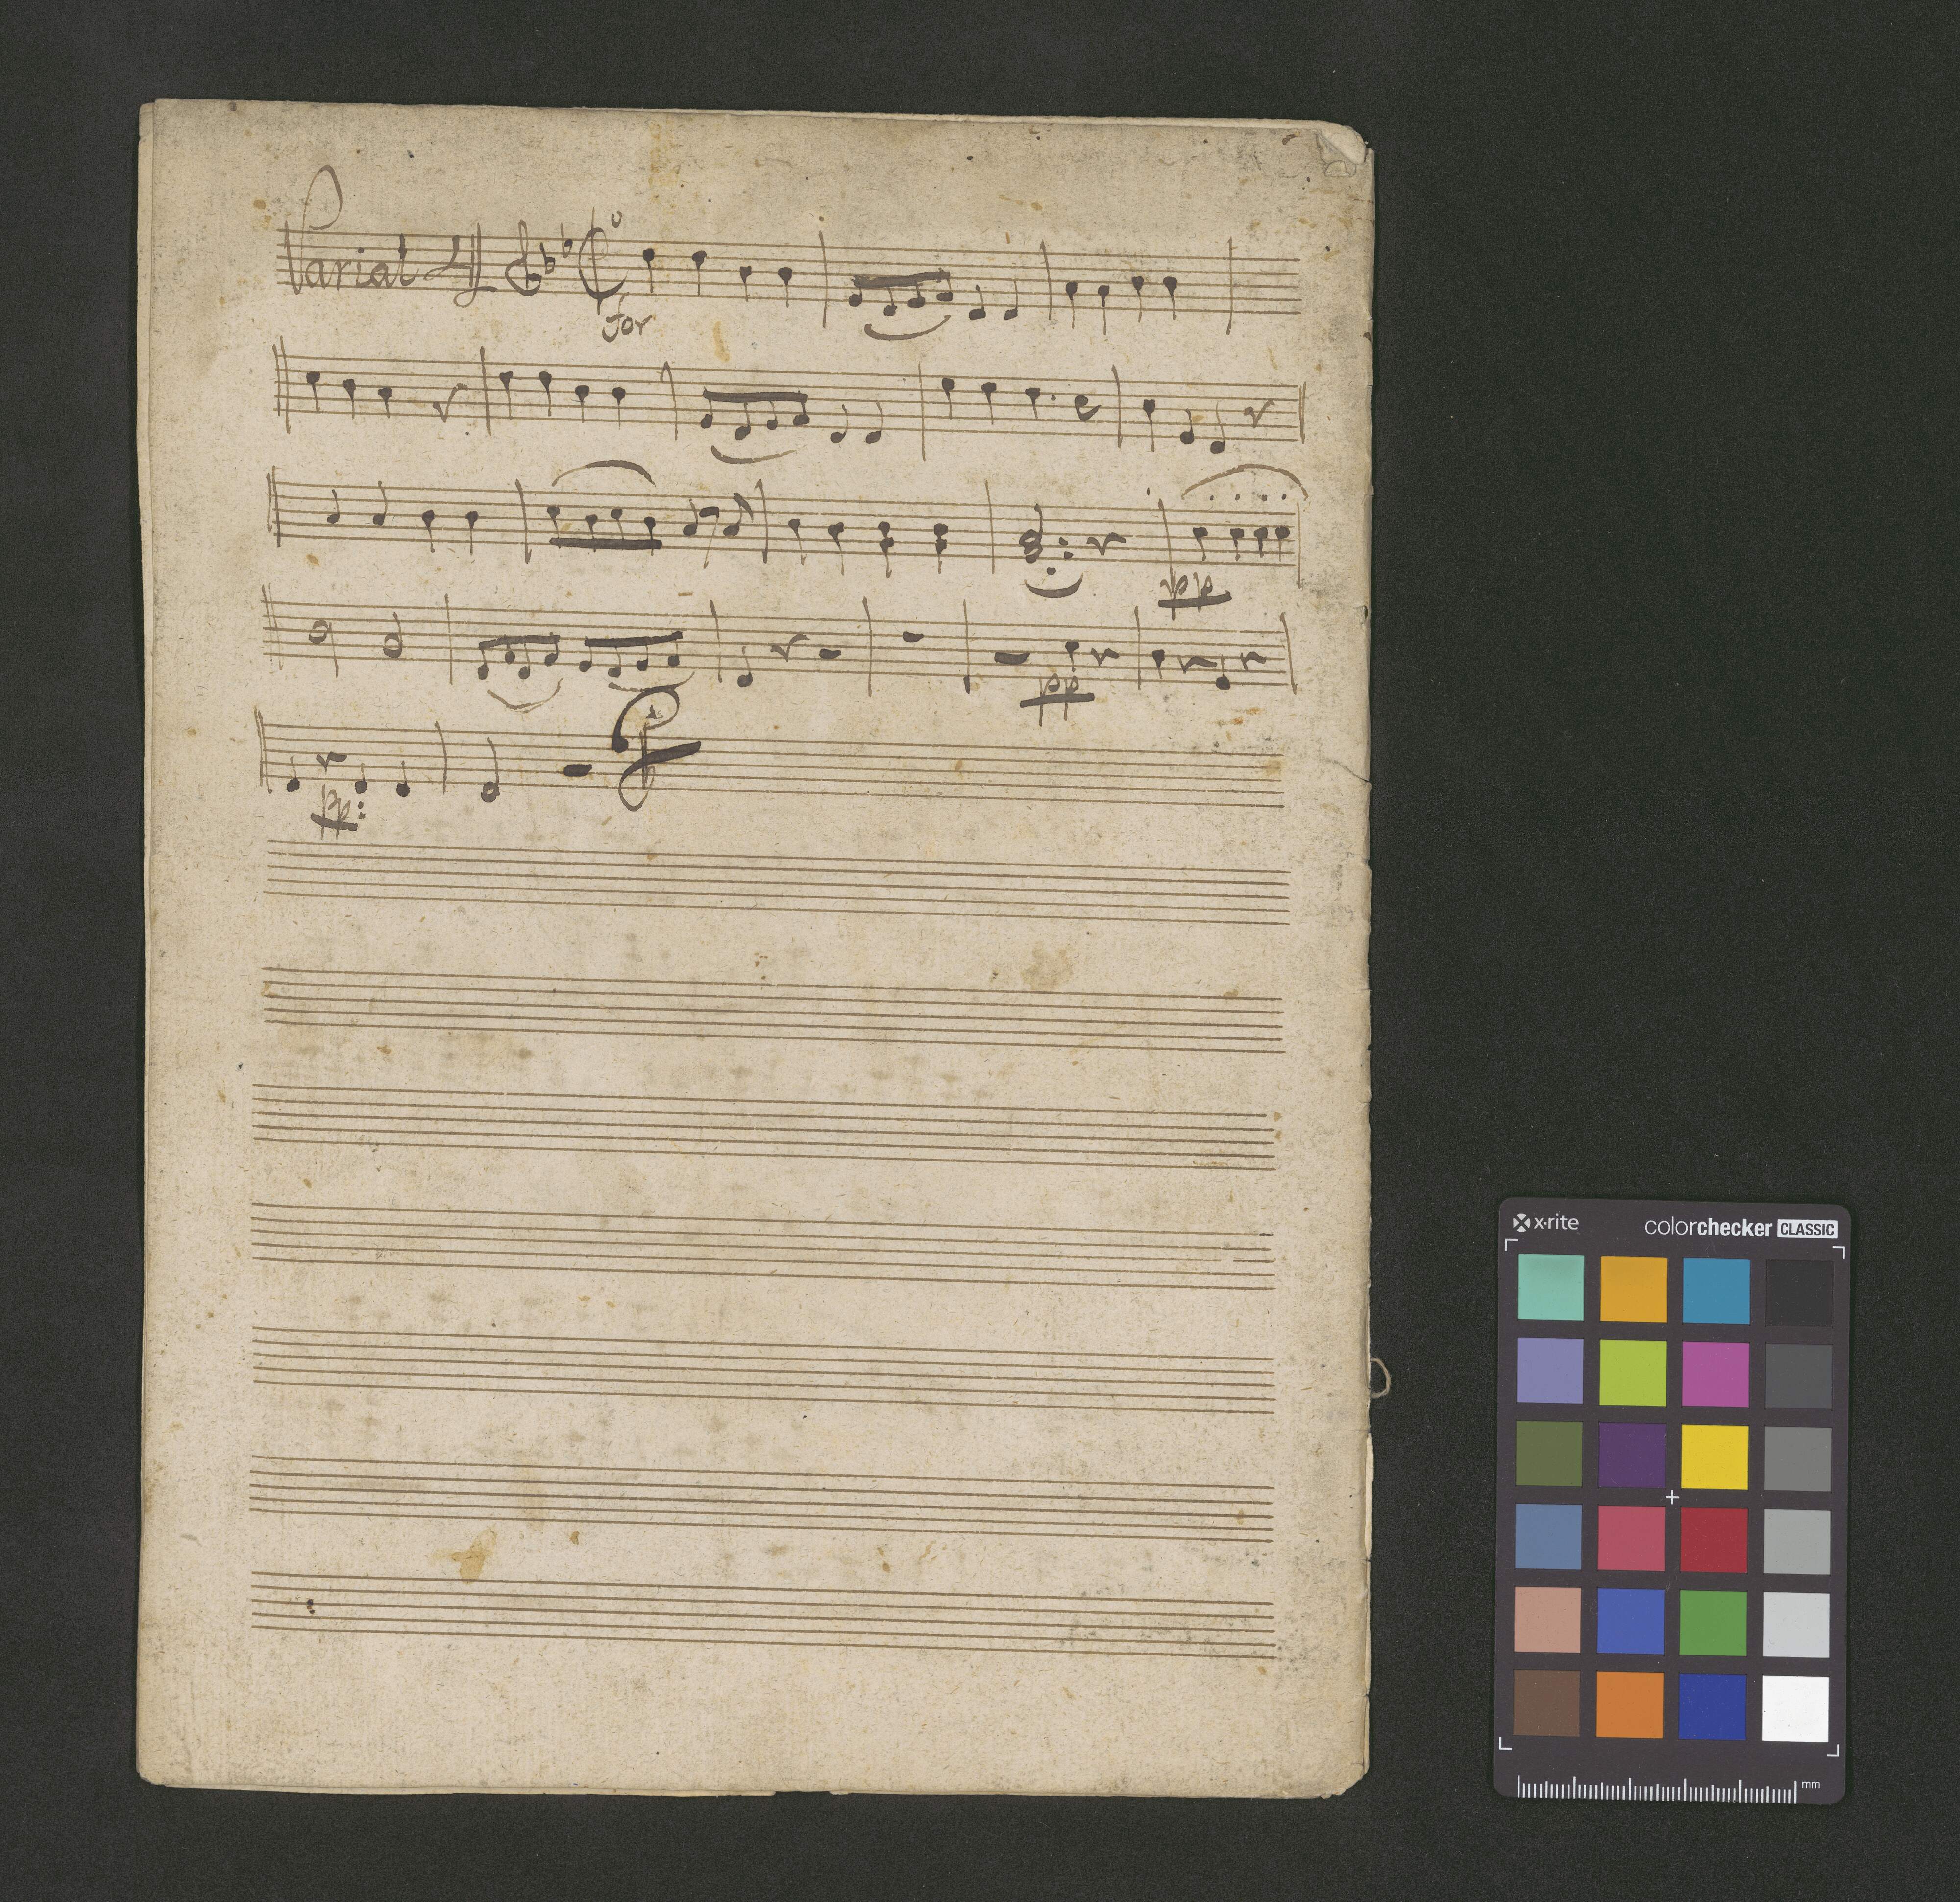 Variat
for
pp
pp
pp:
x·rite colorchecker CLASSIC
mm